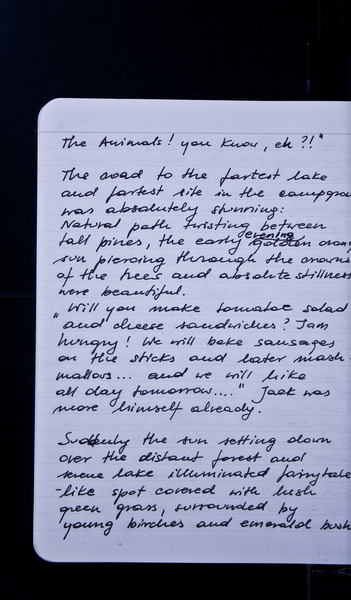 The Animals! you know, eh?!"
The road to the fartest lake
and fartest site in the campgrou
was absolutely stunning:
Natural path twisting between
tall pines, the early evening golden oran
sun piercing through the crowns
of the trees and absolute stillness
were beautiful.
„Will you make tomatoe salad
and cheese sandwiches? I am
hungry! We will bake sausages
on the sticks and later mash-
mallows... and we will hike
all day tomorrow...." Jack was
more himself already.
Suddenly the sun setting down
over the distant forest and
serene lake illuminated fairytale
-like spot covered with lush
green grass, surrounded by
young birches and emerald bush